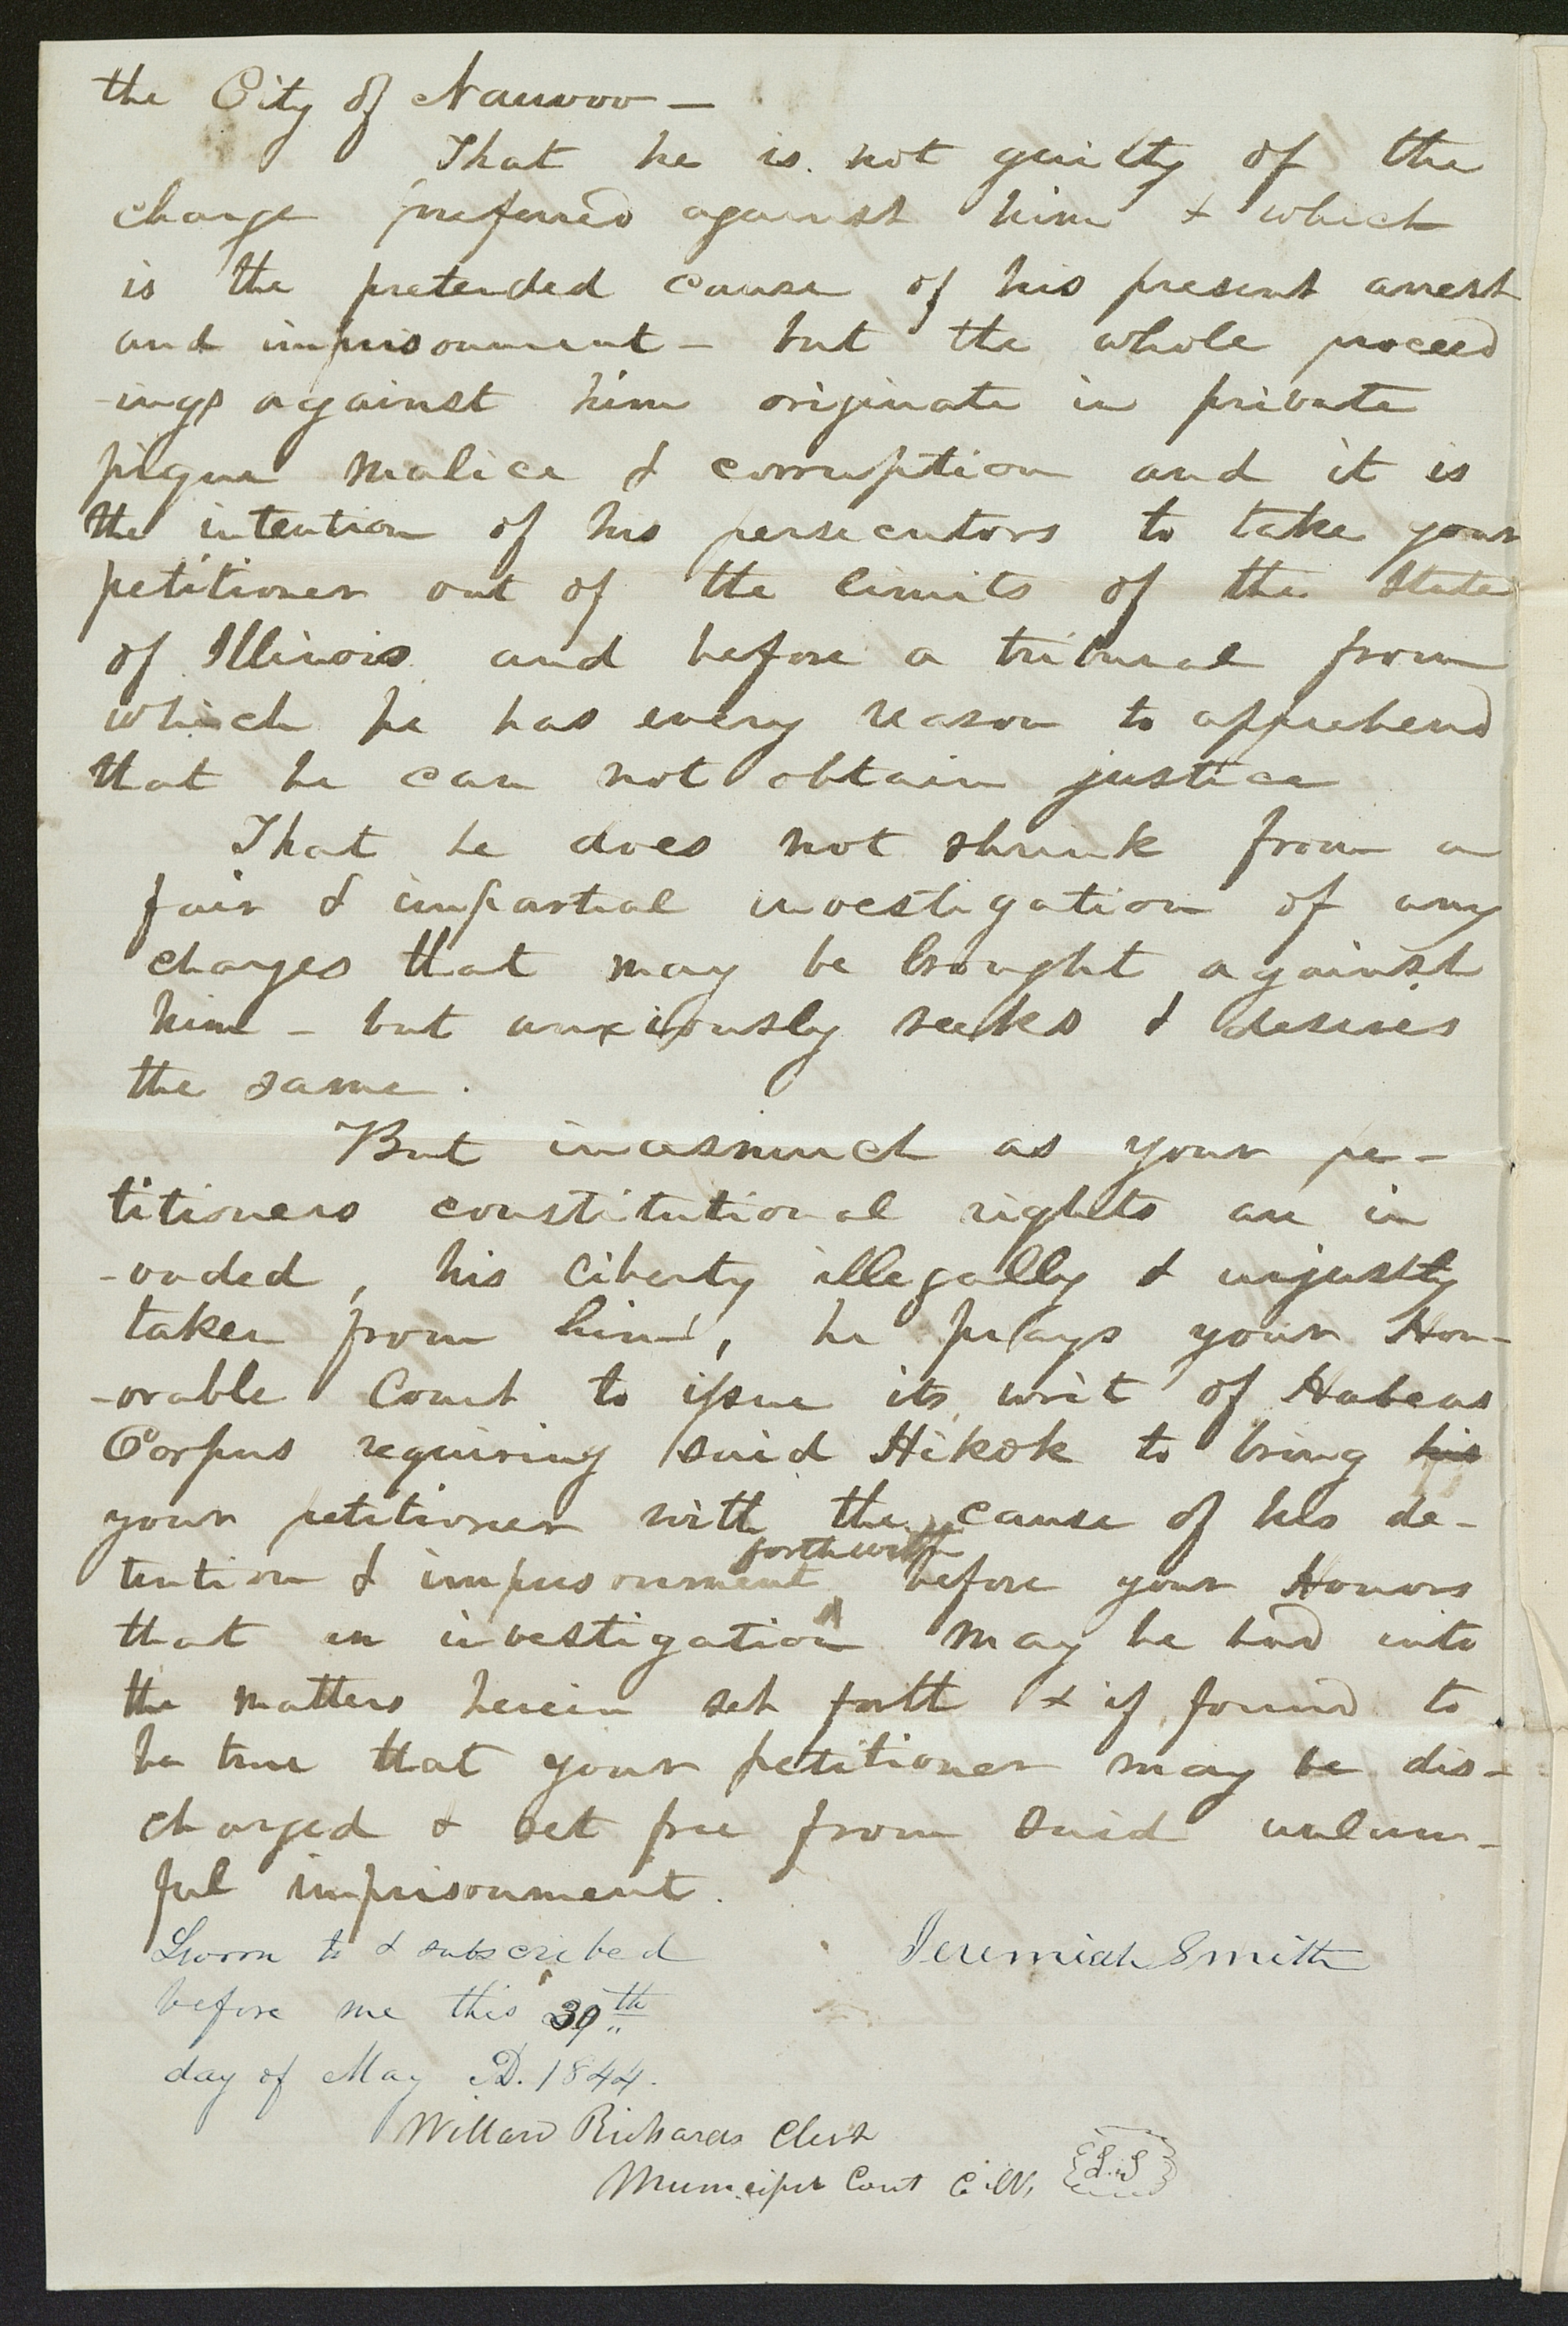 the City of Nauvoo —
That he is not guilty of the
charge preferred against him & which
is the pretended cause of his present arrest
and imprisonment – but the whole proceed
-ings against him originate in private
pique malice & corruption and it is
the intention of his persecutors to take your
petitioner out of the limits of the State
of Illinois and before a tribunal from
which he has every reason to apprehend
that he can not obtain justice
That he does not shrink from a
fair & impartial investigation of any
charges that may be brought against
him – but anxiously seeks & desires
the same.
But inasmuch as your pe-
titioners constitutional rights are in
-vaded, his liberty illegally & unjustly
taken from him, he prays your Hon-
-orable Court to issue its writ of Habeas
Corpus requiring said Hikok to bring his
your petitioner with the cause of his de-
forthwith
tention & imprisonment before your Honors
that an investigation may be had into
the matters herein set forth & if found to
be true that your petitioner may be dis-
charged & set free from said unlaw-
ful imprisonment.
Sworn to & subscribed Jeremiah Smith
before me this 30th
day of May AD. 1844.
Willard Richards Clerk
Municipal Court C. N. L.S